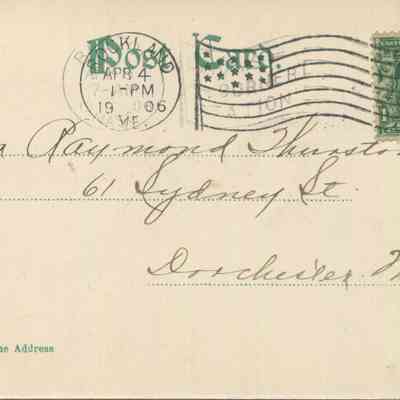 Post Card.
ROCKLAND
APR 4
7-1PM
1906
ME.
a Raymond Thursto
61 Sydney St.
Dorchester M
ne Address